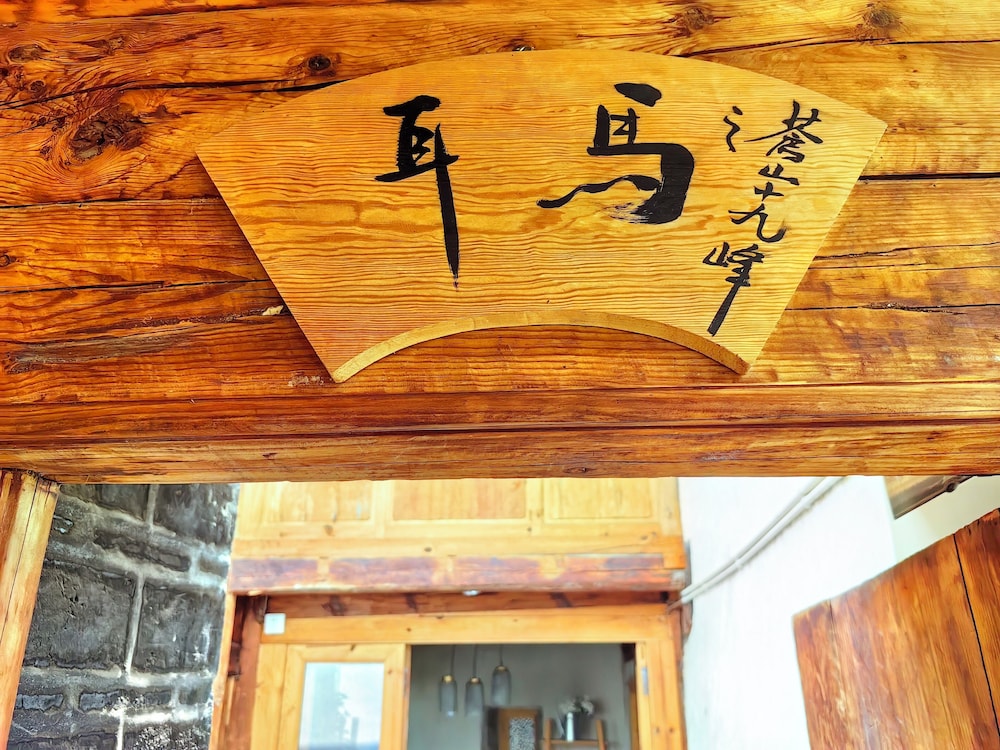 蒼山十九峰
之
馬耳